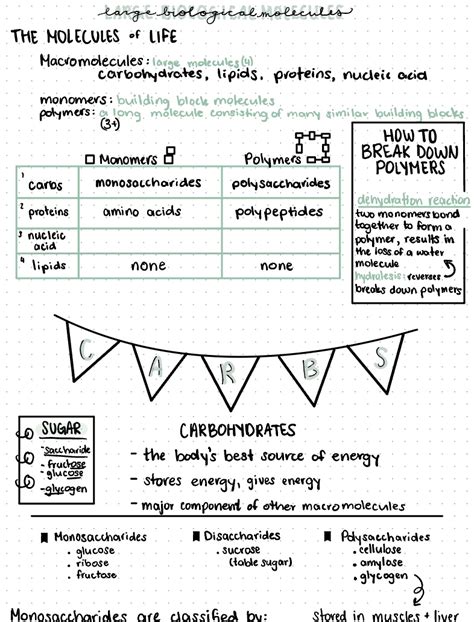 large biological molecules
THE MOLECULES of LIFE
Macromolecules: large molecules (4)
carbohydrates, lipids, proteins, nucleic acid
monomers: building block molecules
polymers: a long molecule consisting of many similar building blocks
(3+)
Monomers Polymers
1 carbs monosaccharides polysaccharides
2 proteins amino acids polypeptides
3 nucleic acid
4 lipids none none
HOW TO
BREAK DOWN
POLYMERS
dehydration reaction
two monomers bond
together to form a
polymer, results in
the loss of a water
molecule
hydrolesis: reverses
breaks down polymers
CARBS
SUGAR
-saccharide
-fructose
-glucose
-glycogen
CARBOHYDRATES
- the body's best source of energy
- stores energy, gives energy
- major component of other macromolecules
Monosaccharides
• glucose
• ribose
• fructose
Disaccharides
• sucrose
(table sugar)
Polysaccharides
• cellulose
• amylose
• glycogen
Monosaccharides are classified by:
stored in muscles + liver